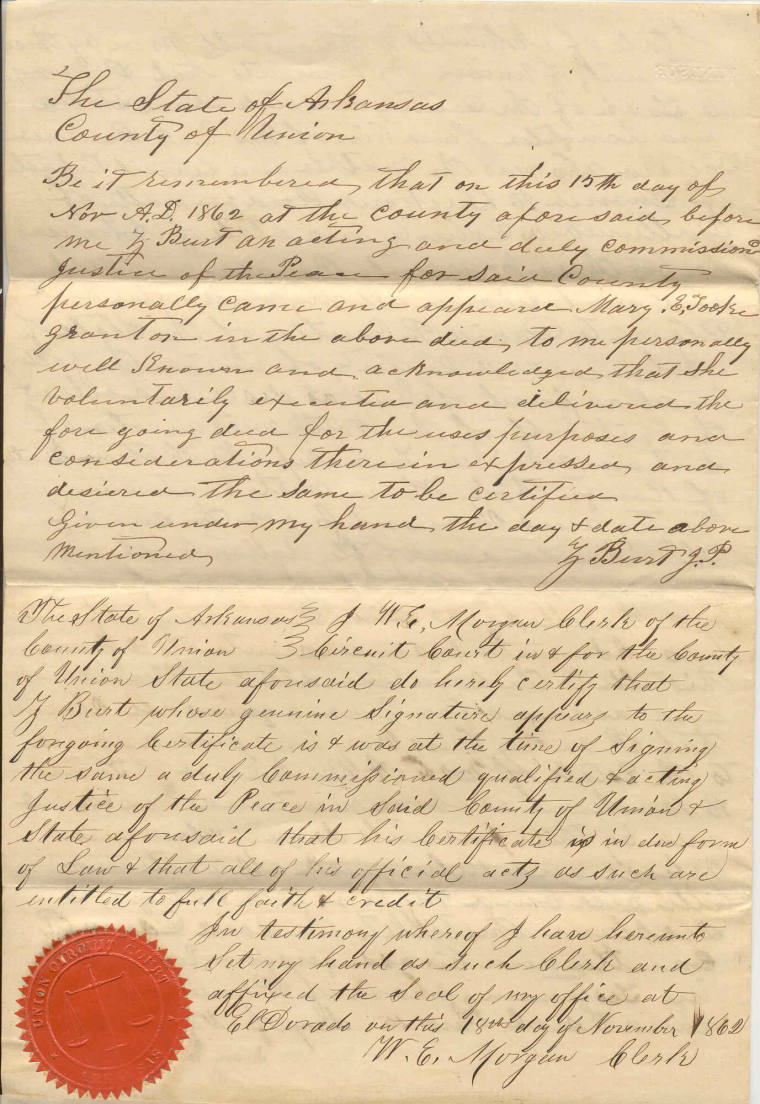 The State of Arkansas
County of Union
Be it remembered, that on this 15th day of
Nov A.D. 1862 at the county aforesaid, before
me Burt an acting and duly commission
Justice of the Peace for said County
personally came and appeared Mary E.
grantor in the above deed, to me personally
well Known and acknowledged that she
voluntarily executed and delivered the
fore going deed for the uses purposes and
considerations therein expressed, and
desiered the same to be certified
Given under my hand, the day & date above
mentioned
Burt J.P.
The State of Arkansas } I W.E. Morgan Clerk of the
County of Union } Circuit Court in & for the County
of Union State aforesaid do hereby certify that
Burt whose genuine Signature appears to the
forgoing Certificate is & was at the time of Signing
the same a duly Commissioned qualified & acting
Justice of the Peace in Said County of Union &
State aforesaid that his Certificate is in due form
of Law & that all of his official acts as such are
entitled to full faith & credit
In testimony whereof I have hereunto
Set my hand as Such Clerk and
affixed the Seal of my office at
El Dorado on this 18th day of November 1862
W.E. Morgan Clerk
UNION CIRCUIT COURT